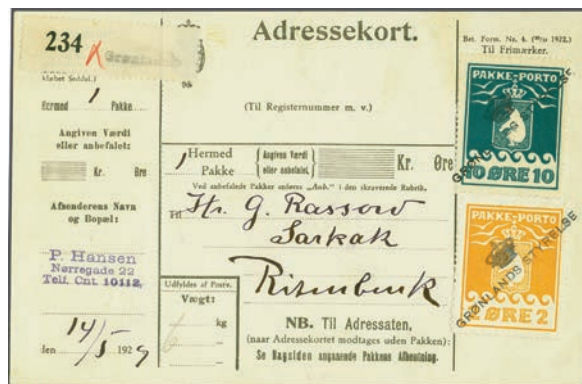 234
Hermed 1 Pakke
Angiven Værdi
eller anbefalet:
Kr. Øre
Afsenderens Navn
og Bopæl:
P. Hansen
Nørregade 22
Telf. Cnt 10112,
14/5
den 1929
Adressekort.
(Til Registernummer m. v.)
1 Hermed
Pakke
Angiven Værdi
eller anbefalet,
Kr. Øre
Ved anbefalede Pakker anføres „Anb.“ i den skraverede Rubrik.
Til Hr. G. Rassow
Sarkak
Ritenbenk
Udfyldes af Postv.
Vægt:
6 kg
NB. Til Adressaten,
(naar Adressekortet modtages uden Pakken):
Se Bagsiden angaaende Pakkens Afhentning.
Bet. Form. Nr. 4.
Til Frimærker.
PAKKE-PORTO
10 ØRE 10
GRØNLANDS STYRELSE.
PAKKE-PORTO
2 ØRE 2
GRØNLANDS STYRELSE